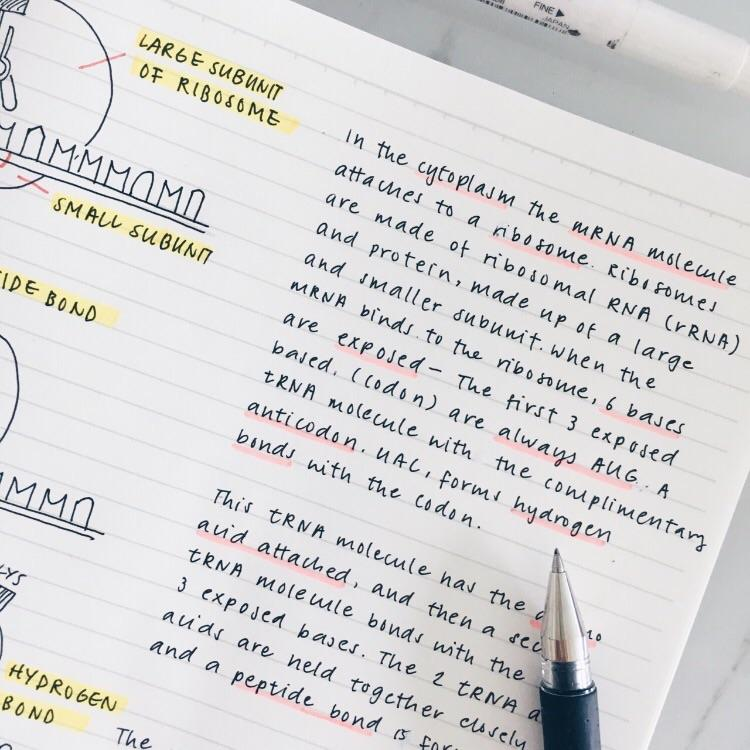 FINE
JAPAN
LARGE SUBUNIT
OF RIBOSOME
SMALL SUBUNIT
BOND
HYDROGEN
BOND
The
In the cytoplasm the mRNA molecule
attaches to a ribosome. Ribosomes
are made of ribosomal RNA (rRNA)
and protein, made up of a large
and smaller subunit. When the
mRNA binds to the ribosome, 6 bases
are exposed – The first 3 exposed
based, (codon) are always AUG. A
tRNA molecule with the complimentary
anticodon. UAC, forms hydrogen
bonds with the codon.
This tRNA molecule has the
acid attached, and then a
tRNA molecule bonds with the
3 exposed bases. The 2 tRNA
acids are held together closely
and a peptide bond is